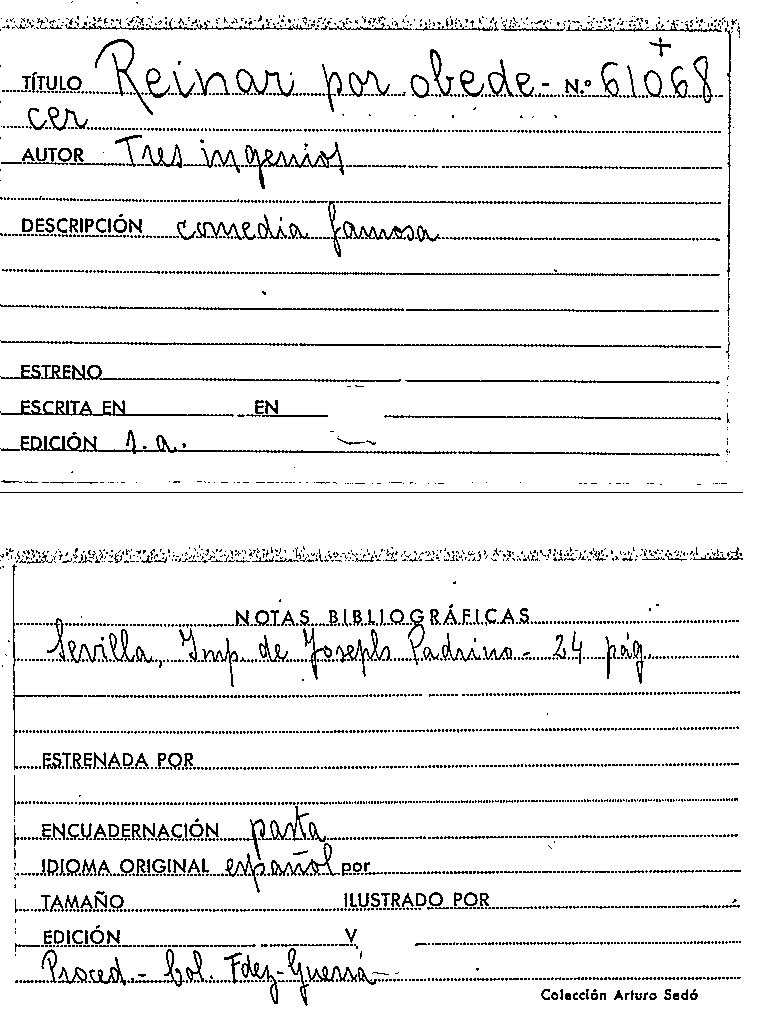 TÍTULO Reinar por obede- N.º 61068
+
cer
AUTOR Tres ingenios
DESCRIPCIÓN comedia famosa
ESTRENO
ESCRITA EN EN
EDICIÓN s.a.
NOTAS BIBLIOGRÁFICAS
Sevilla, Imp. de Joseph Padrino - 24 pág.
ESTRENADA POR
ENCUADERNACIÓN pasta
IDIOMA ORIGINAL español por
TAMAÑO ILUSTRADO POR
EDICIÓN V
Proced. - Col. Fdez-Guerra
Colección Arturo Sedó